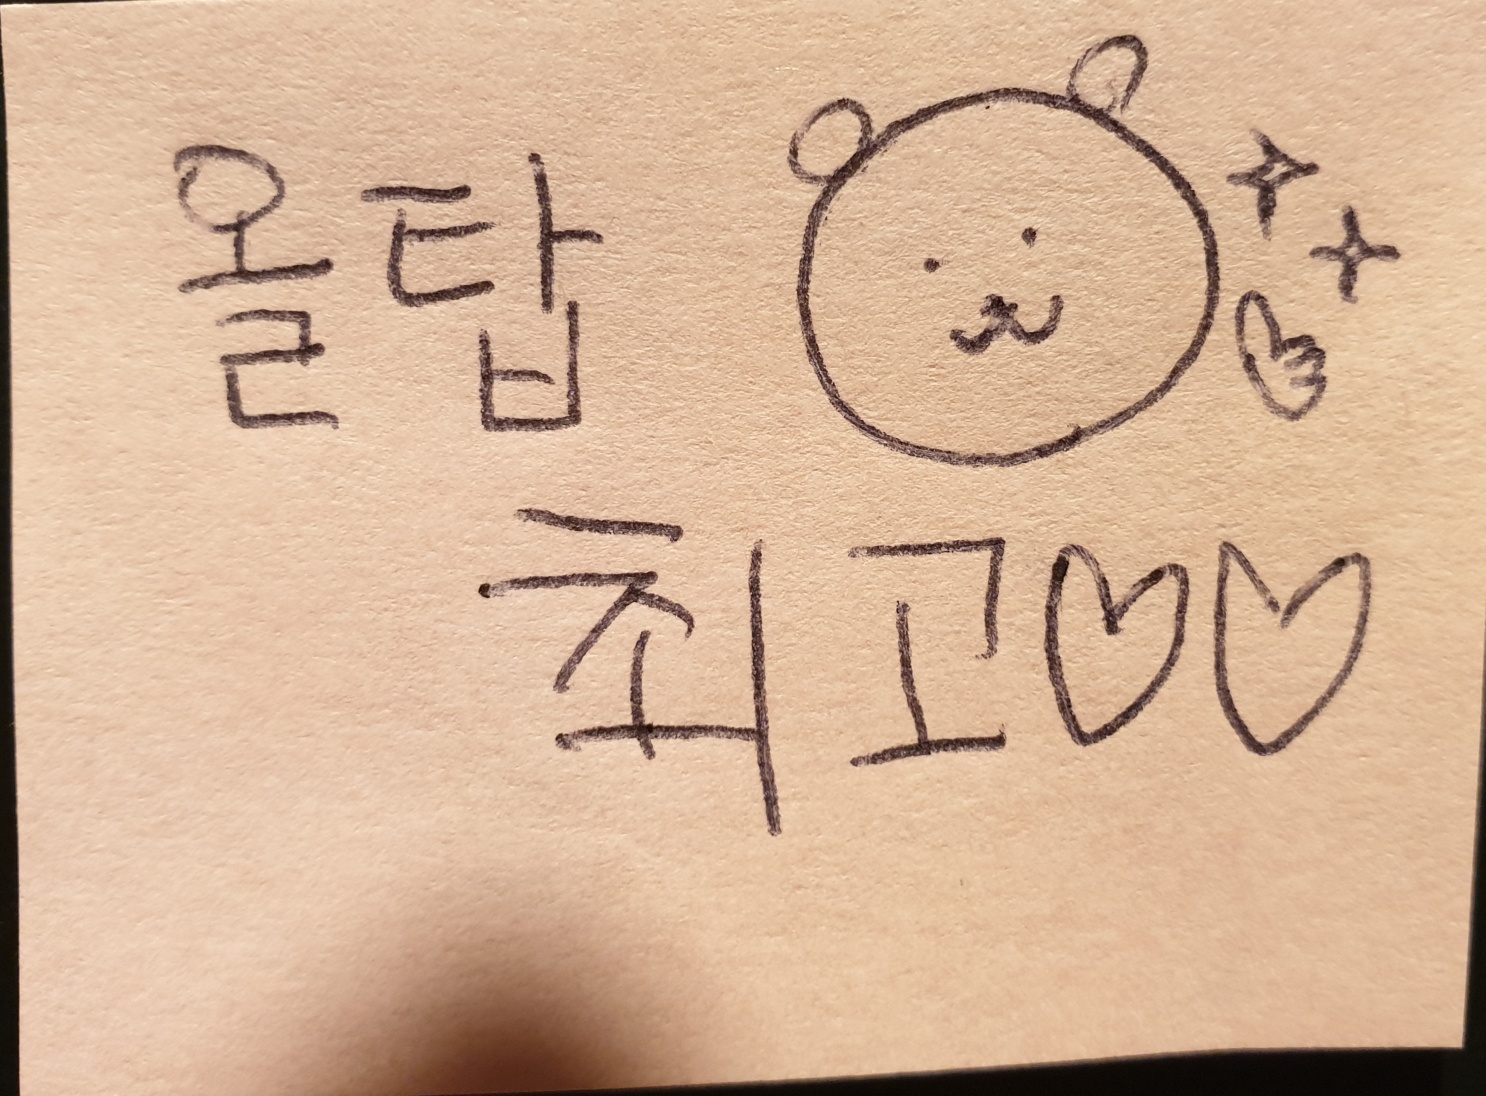 올탑
최고♡♡